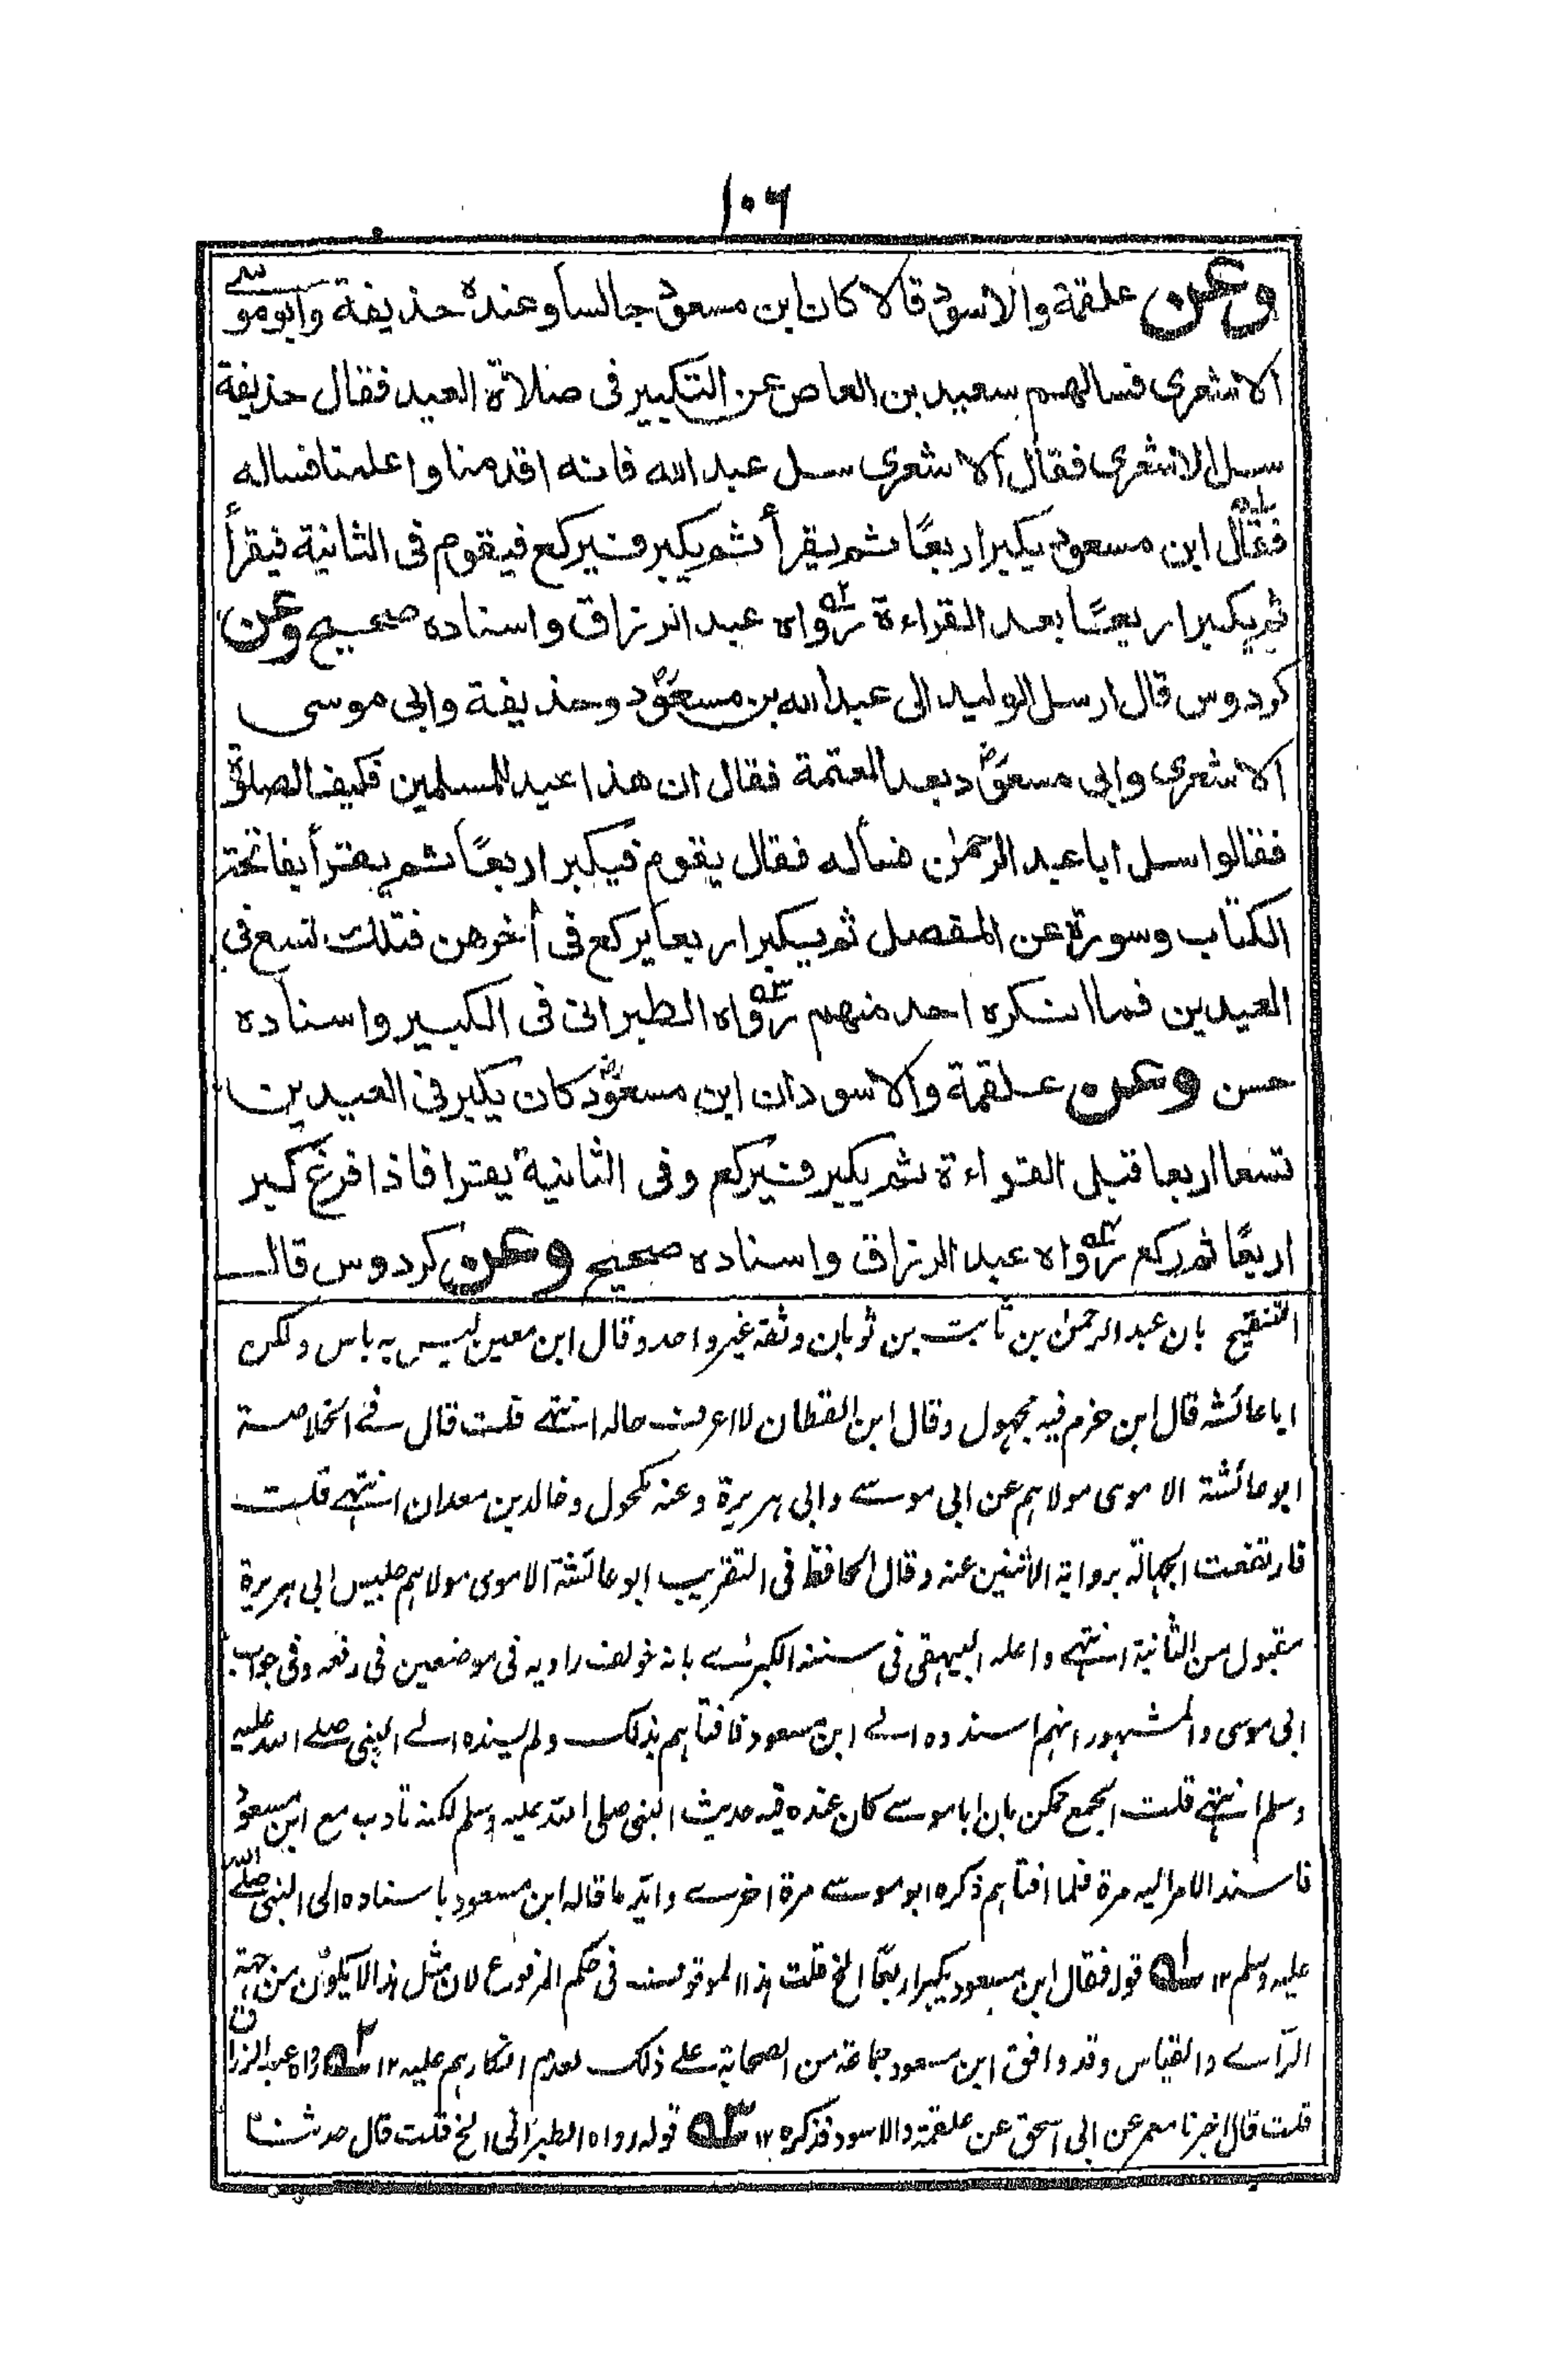 ١٠٦
وعن علقمة والاسود قالا كان ابن مسعود جالسا وعنده حذيفة وابو موسى
الاشعرى فسالهم سعيد بن العاص عن التكبير فى صلاة العيد فقال حذيفة
سل الاشعرى فقال الاشعرى سل عبد الله فانه اقدمنا واعلمنا فساله
فقال ابن مسعود يكبر اربعًا ثم يقرأ ثم يكبر فيركع فيقوم فى الثانية فيقرأ
ثم يكبر اربعًا بعد القراءة رواه عبد الرزاق واسناده صحيح وعن
كردوس قال ارسل الوليد الى عبد الله بن مسعود وحذيفة وابى موسى
الاشعرى وابى مسعود بعد العتمة فقال ان هذا عيد المسلمين فكيف الصلوة
فقالوا سل ابا عبد الرحمٰن فسأله فقال يقوم فيكبر اربعًا ثم يقرأ بفاتحة
الكتاب وسورة عن المفصل ثم يكبر اربعا يركع فى أخرهن فتلك تسع فى
العيدين فما انكره احد منهم رواه الطبرانى فى الكبير واسناده
حسن وعن علقمة والاسود ان ابن مسعود كان يكبر فى العيدين
تسعا اربعا قبل القراءة ثم يكبر فيركع وفى الثانية يقرا فاذا فرغ كبر
اربعًا ثم ركع رواه عبد الرزاق واسناده صحيح وعن كردوس قال
التنقيح بان عبد الرحمٰن بن ثابت بن ثوبان وثقه غير واحد وقال ابن معين ليس به باس ولكن
ابا عائشه قال ابن حزم فيه مجهول وقال ابن القطان لا اعرف حاله انتهے قلت قال فے الخلاصة
ابو عائشة الاموى مولاهم عن ابى موسے وابى هريرة وعنه مكحول وخالد بن معدان انتهے قلت
فارتفعت الجهالة برواية الاثنين عنه وقال الحافظ فى التقريب ابو عائشة الاموى مولاهم جليس ابى هريرة
مقبول من الثانية انتهے واعله البيهقى فى سننه الكبرىے بانه خولف راويه فى موضعين فى رفعه وفى جواب
ابى موسى والمشهور انهم اسندوه الے ابن مسعود فافتاهم بذلك ولم يسنده الے النبى صلے الله عليه
وسلم انتهے قلت الجمع ممكن بان ابا موسے كان عنده فيه حديث النبى صلى الله عليه وسلم لكنه تادب مع ابن مسعود
فاسند الامر اليه مرة فلما افتاهم ذكره ابو موسے مرة اخرے وايّد ما قاله ابن مسعود باسناده الى النبى صلے الله
عليه وسلم ١٢ ١ـه قوله فقال ابن مسعود يكبر اربعًا الخ قلت هذا الموقوف فى حكم المرفوع لان مثل هذا لا يكون من جهة
الرأے والقياس وقد وافق ابن مسعود جماعة من الصحابة علے ذلك لعدم انكارهم عليه ١٢ ٢ـه رواه عبد الرزاق
قلت قال اخبرنا معمر عن ابى اسحق عن علقمة والاسود فذكره ١٢ ٣ـه قوله رواه الطبرانى الخ قلت قال حدثنا